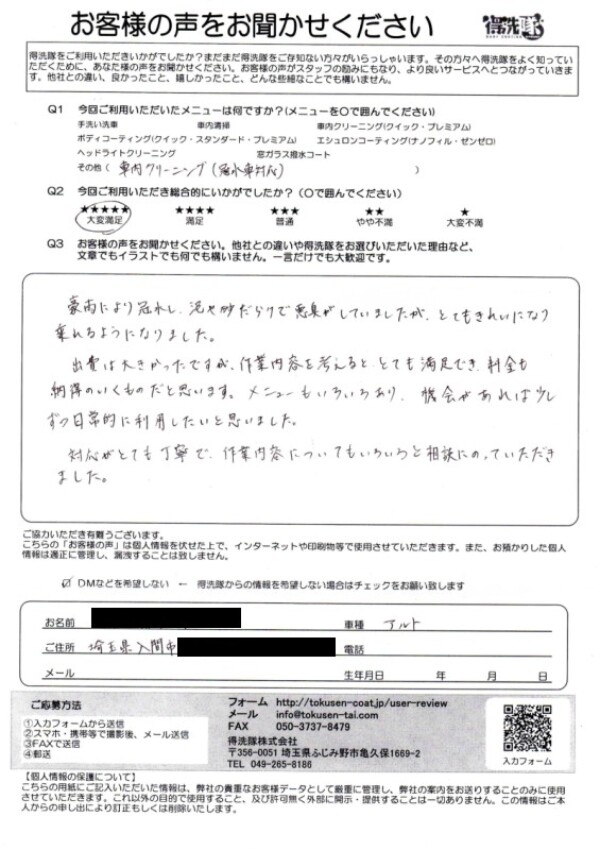 お客様の声をお聞かせください
得洗隊
得洗隊をご利用いただきいかがでしたか？まだまだ得洗隊をご存知ない方々がいらっしゃいます。その方々へ得洗隊をよく知っていた
だくために、あなた様の声をお聞かせください。お客様の声がスタッフの励みにもなり、より良いサービスへとつながっていきま
す。他社との違い、良かったこと、嬉しかったこと、どんな些細なことでも構いません。
Q1 今回ご利用いただいたメニューは何ですか？(メニューを〇で囲んでください)
手洗い洗車 車内清掃 車内クリーニング(クイック・プレミアム)
ボディコーティング(クイック・スタンダード・プレミアム) エシュロンコーティング(ナノフィル・ゼンゼロ)
ヘッドライトクリーニング 窓ガラス撥水コート
その他( 車内クリーニング(冠水車対応) )
Q2 今回ご利用いただき総合的にいかがでしたか？(〇で囲んでください)
★★★★★ ★★★★ ★★★ ★★ ★
大変満足 満足 普通 やや不満 大変不満
Q3 お客様の声をお聞かせください。他社との違いや得洗隊をお選びいただいた理由など、
文章でもイラストでも何でも構いません。一言だけでも大歓迎です。
豪雨により冠水し、泥や砂だらけで悪臭がしていましたが、とてもきれいになり
乗れるようになりました。
出費は大きかったですが、作業内容を考えると、とても満足でき、料金も
納得のいくものだと思います。メニューもいろいろあり、機会があれば少し
ずつ日常的に利用したいと思いました。
対応がとても丁寧で、作業内容についてもいろいろと相談にのっていただき
ました。
ご協力いただき有難うございます。
こちらの「お客様の声」は個人情報を伏せた上で、インターネットや印刷物等で使用させていただきます。また、お預かりした個人
情報は適正に管理し、漏洩することは致しません。
☑ DMなどを希望しない ← 得洗隊からの情報を希望しない場合はチェックをお願い致します
お名前 車種 アルト
ご住所 埼玉県入間市 電話
メール 生年月日 年 月 日
ご応募方法
①入力フォームから送信
②スマホ・携帯等で撮影後、メール送信
③FAXで送信
④郵送
フォーム http://tokusen-coat.jp/user-review
メール info@tokusen-tai.com
FAX 050-3737-8479
得洗隊株式会社
〒356-0051 埼玉県ふじみ野市亀久保1669-2
TEL 049-265-8186
入力フォーム
【個人情報の保護について】
こちらの用紙にご記入いただいた情報は、弊社の貴重なお客様データとして厳重に管理し、弊社の案内をお送りすることのみに使用
させていただきます。これ以外の目的で使用すること、及び許可無く外部に開示・提供することは一切ありません。この情報はご本
人からの申し出により訂正もしくは削除いたします。